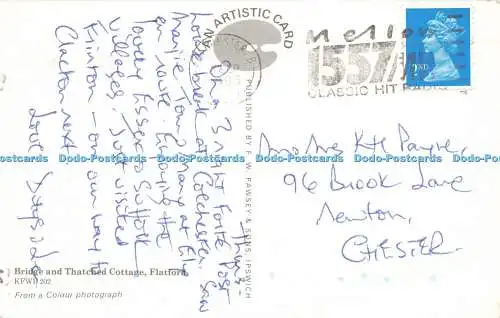 AN ARTISTIC CARD
Mellow
1557
CLASSIC HIT RADIO
2ND
On a 3 night Forte Post
House break at Colchester. Saw
Marjie
on route. Enjoying the
lovely Essex & Suffolk
villages. Just visited
Frinton - on our way to
Clacton next
Love
PUBLISHED BY F. W. PAWSEY & SONS, IPSWICH
Mr & Mrs K H Payne,
96 Brook Lane
Newton,
CHESTER.
Bridge and Thatched Cottage, Flatford
KFWP 202
From a Colour photograph
Dodo-Postcards Dodo-Postcards Dodo-Postcards Dodo-Postcards Dodo-Postcards Dodo-Postcards